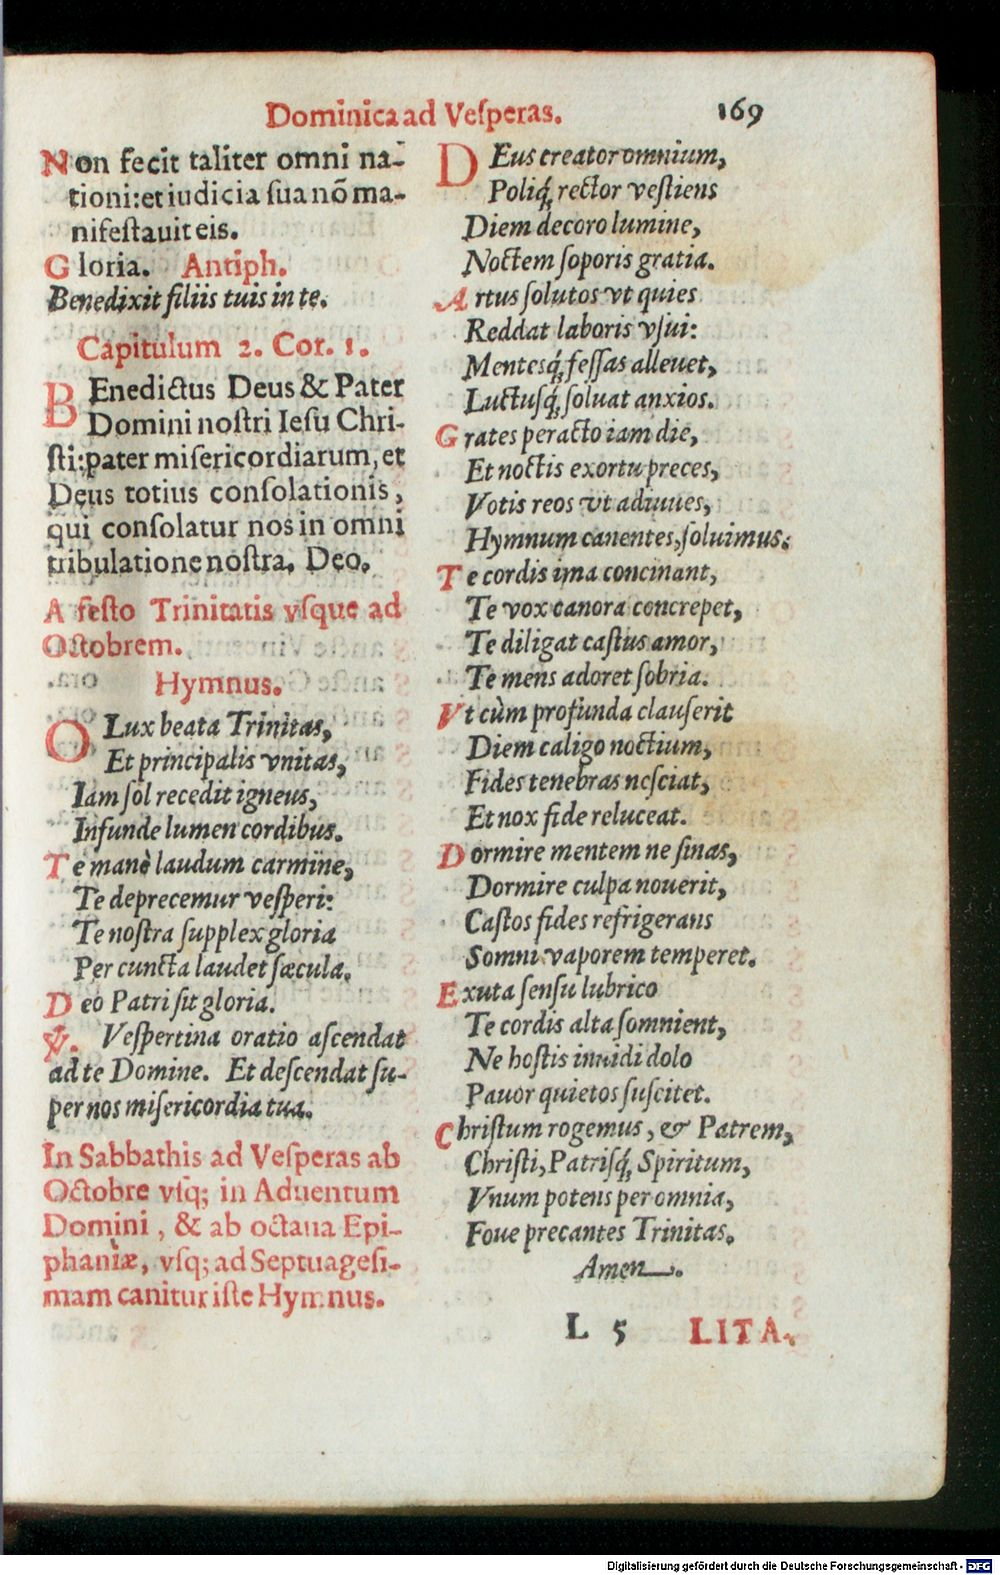 Dominica ad Veſperas. 169
Non fecit taliter omni na-
tioni: et iudicia ſua nõ ma-
nifeſtauit eis.
Gloria. Antiph.
Benedixit filiis tuis in te.
Capitulum 2. Cor. 1.
BEnedictus Deus & Pater
Domini noſtri Ieſu Chri-
ſti: pater miſericordiarum, et
Deus totius conſolationis,
qui conſolatur nos in omni
tribulatione noſtra. Deo.
A feſto Trinitatis vſque ad
Octobrem.
Hymnus.
O Lux beata Trinitas,
Et principalis vnitas,
Iam ſol recedit igneus,
Infunde lumen cordibus.
Te manè laudum carmine,
Te deprecemur veſperi:
Te noſtra ſupplex gloria
Per cuncta laudet ſæcula.
Deo Patri ſit gloria.
℣. Veſpertina oratio aſcendat
ad te Domine. Et deſcendat ſu-
per nos miſericordia tua.
In Sabbathis ad Veſperas ab
Octobre vſq; in Aduentum
Domini, & ab octaua Epi-
phaniæ, vſq; ad Septuageſi-
mam canitur iſte Hymnus.
DEus creator omnium,
Poliq́; rector veſtiens
Diem decoro lumine,
Noctem ſoporis gratia.
Artus ſolutos vt quies
Reddat laboris vſui:
Mentesq́; feſſas alleuet,
Luctusq́; ſoluat anxios.
Grates peracto iam die,
Et noctis exortu preces,
Votis reos vt adiuues,
Hymnum canentes, ſoluimus.
Te cordis ima concinant,
Te vox canora concrepet,
Te diligat caſtus amor,
Te mens adoret ſobria.
Vt cùm profunda clauſerit
Diem caligo noctium,
Fides tenebras neſciat,
Et nox fide reluceat.
Dormire mentem ne ſinas,
Dormire culpa nouerit,
Caſtos fides refrigerans
Somni vaporem temperet.
Exuta ſenſu lubrico
Te cordis alta ſomnient,
Ne hoſtis inuidi dolo
Pauor quietos ſuſcitet.
Chriſtum rogemus, & Patrem,
Chriſti, Patriſq́; Spiritum,
Vnum potens per omnia,
Foue precantes Trinitas.
Amen.
L 5 LITA.
Digitalisierung gefördert durch die Deutsche Forschungsgemeinschaft - DFG